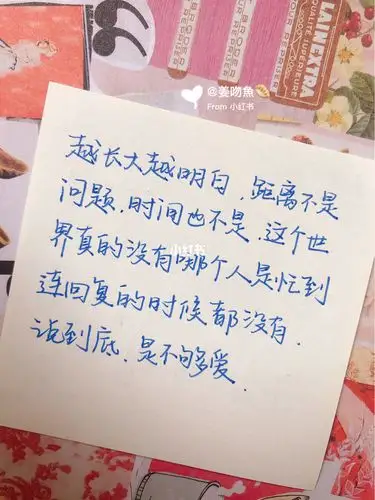 LAIICKTRA
QUALITE SUPERIEURE
BRODER
@姜吻魚
From 小红书
越长大越明白，距离不是
问题，时间也不是，这个世
界真的没有哪个人是忙到
小红书
连回复的时候都没有．
说到底、是不够多爱．